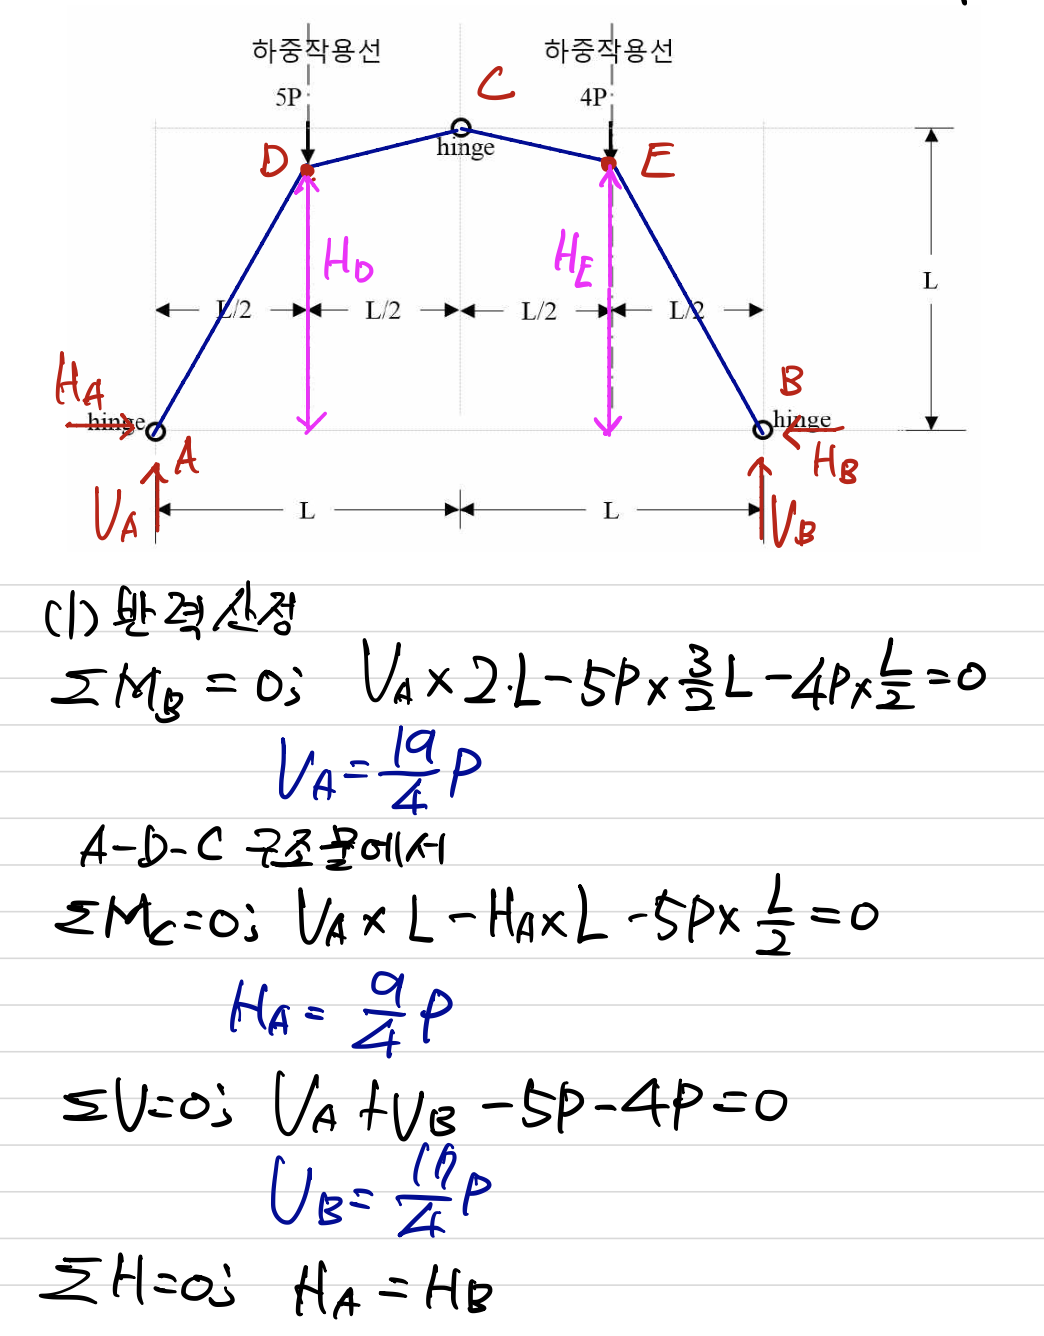 하중작용선 하중작용선
5P 4P C
hinge
D E
H_D H_E
L
L/2 L/2 L/2 L/2
H_A B
hinge hinge
A H_B
V_A L L V_B
(1) 반력산정
ΣM_B = 0; V_A × 2·L - 5P × 3/2 L - 4P × L/2 = 0
V_A = 19/4 P
A-D-C 구조물에서
ΣM_C = 0; V_A × L - H_A × L - 5P × L/2 = 0
H_A = 9/4 P
ΣV = 0; V_A + V_B - 5P - 4P = 0
V_B = 17/4 P
ΣH = 0; H_A = H_B